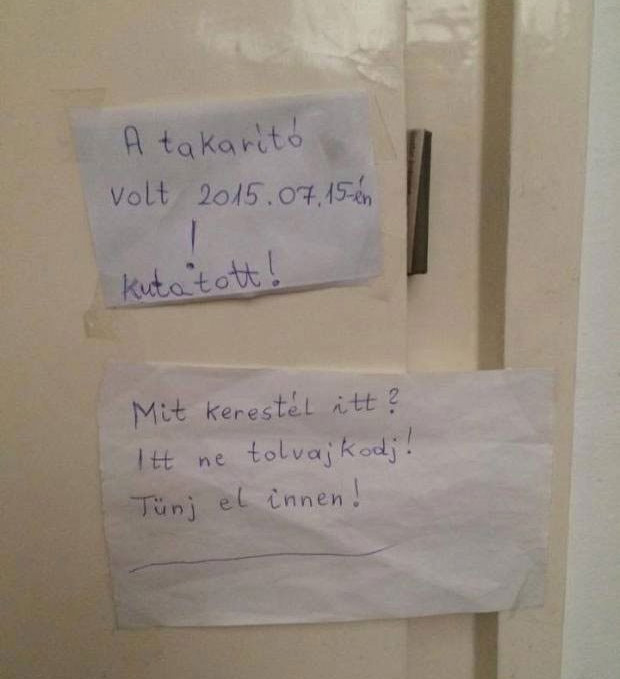 A takarító
volt 2015.07.15-én
!
kutatott!
Mit kerestél itt?
Itt ne tolvajkodj!
Tünj el innen!